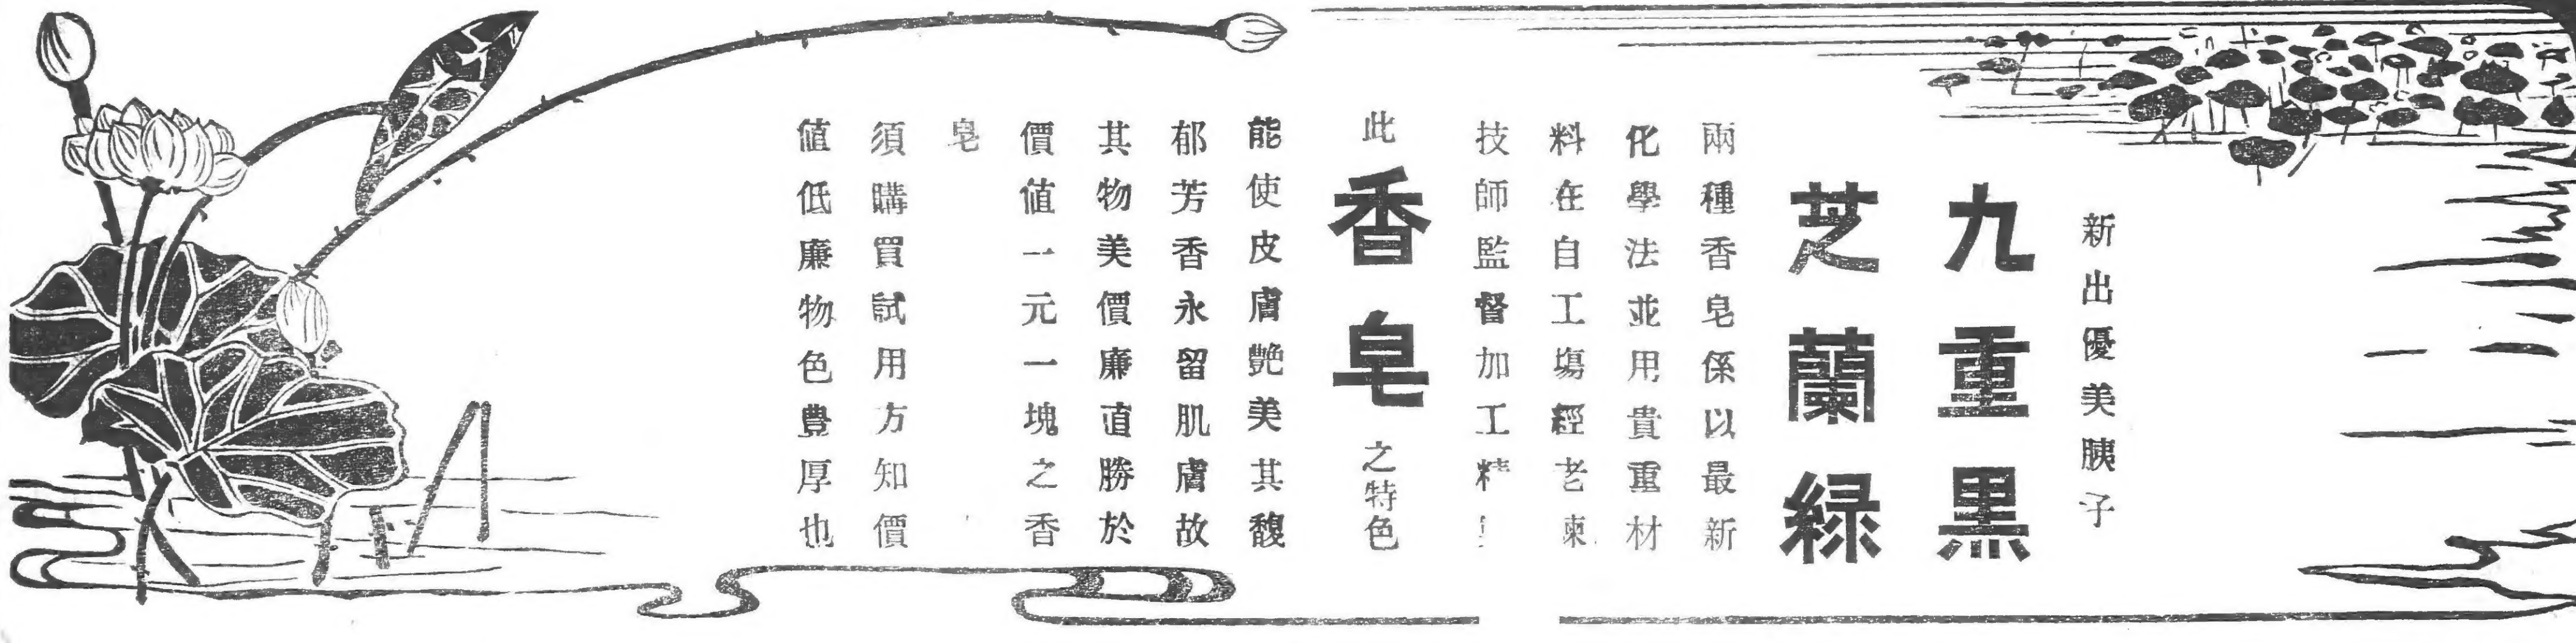 新出優美胰子
九重黑
芝蘭緑
兩種香皂係以最新
化學法並用貴重材
料在自工塲經老
技師監督加工精
此香皂之特色
能使皮膚艷美其馥
郁芳香永留肌膚故
其物美價廉直勝於
價值一元一塊之香
皂
須購買試用方知價
值低廉物色豊厚也